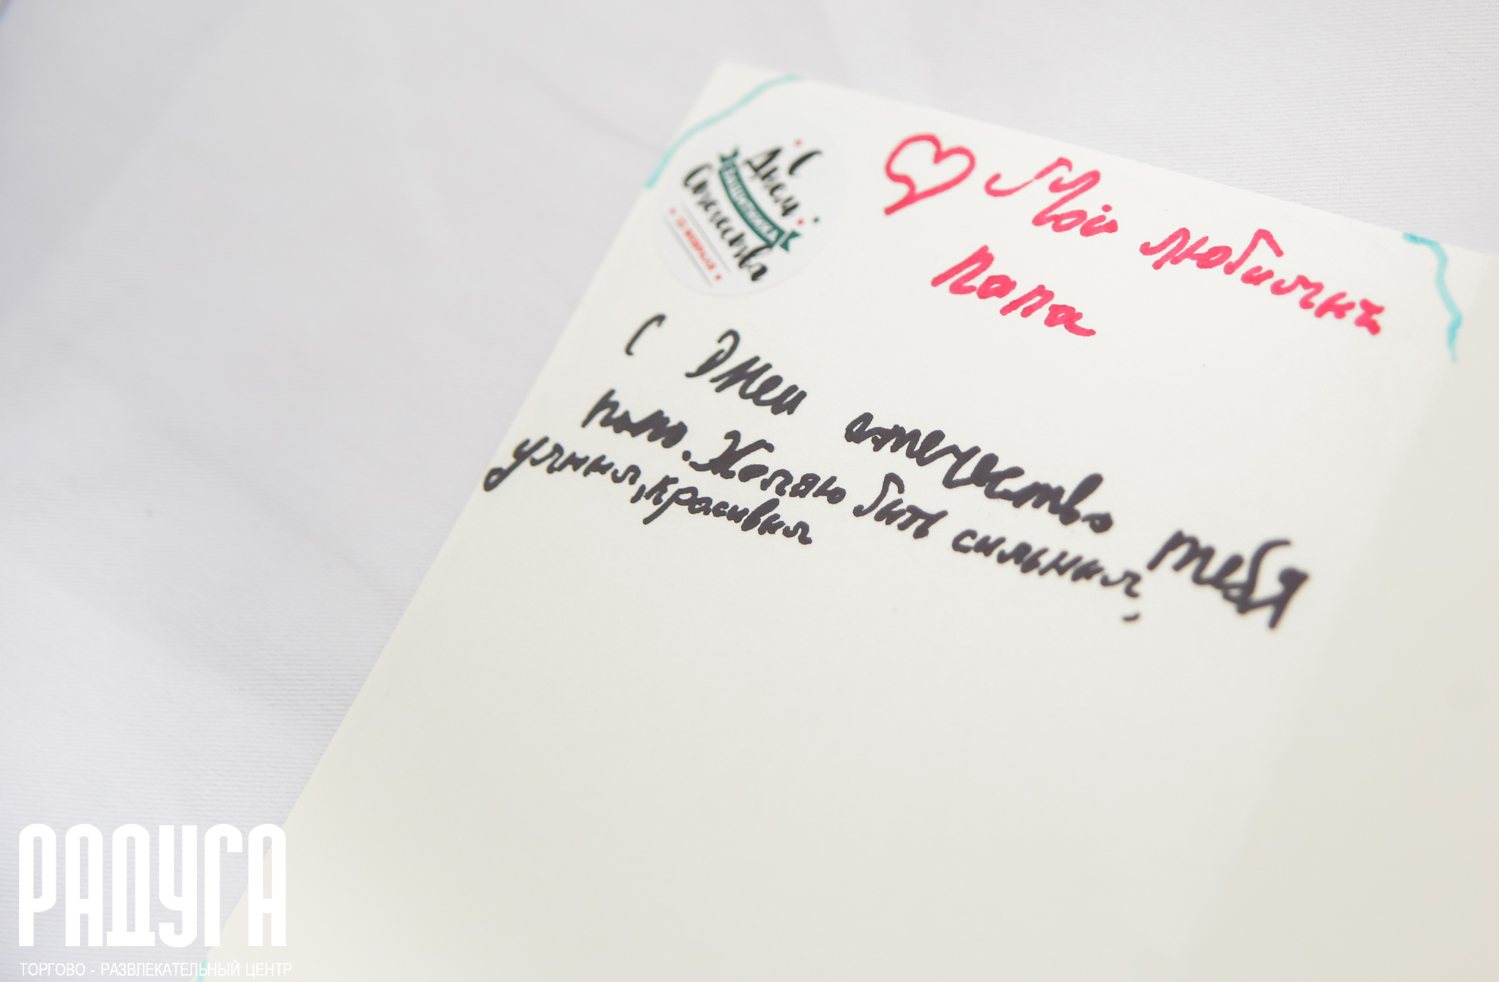 С
Днем
ЗАЩИТНИКА
Отечества
23 ФЕВРАЛЯ
Мой любимый
папа
С Днем отечество тебя
папа. Желяю быть сильныя,
умныя, красивыя
РАДУГА
ТОРГОВО - РАЗВЛЕКАТЕЛЬНЫЙ ЦЕНТР